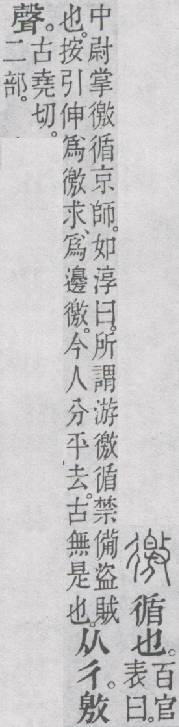 徼
循也。
百官
表曰。
中尉掌徼循京師。如淳曰。所謂游徼循禁僃盜賊
也。按引伸爲徼求、爲邊徼。今人分平去。古無是也。
从彳。敫
聲。
古堯切。
二部。